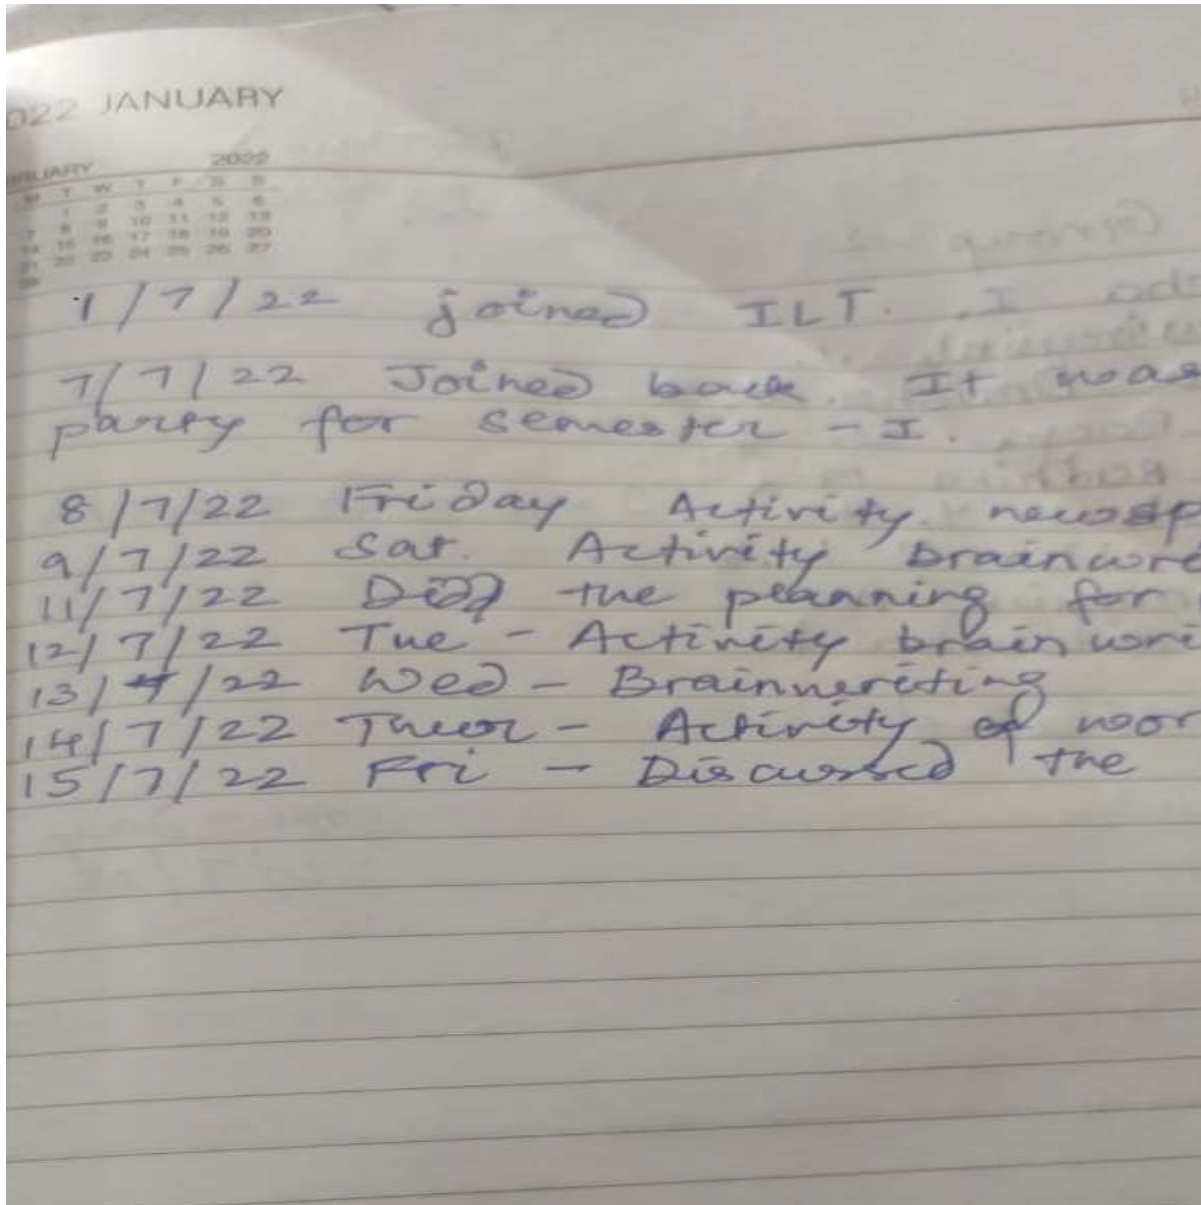 022 JANUARY
BRUARY 2022
M T W T F S S
1 2 3 4 5 6
7 8 9 10 11 12 13
14 15 16 17 18 19 20
21 22 23 24 25 26 27
28
1/7/22 joined ILT. I
7/7/22 Joined back. It was
party for semester - I.
8/7/22 Friday Activity newsp
9/7/22 Sat. Activity brainwri
11/7/22 Did the planning for
12/7/22 Tue - Activity brainwri
13/7/22 Wed - Brainwriting
14/7/22 Thur - Activity of wor
15/7/22 Fri - Discussed the